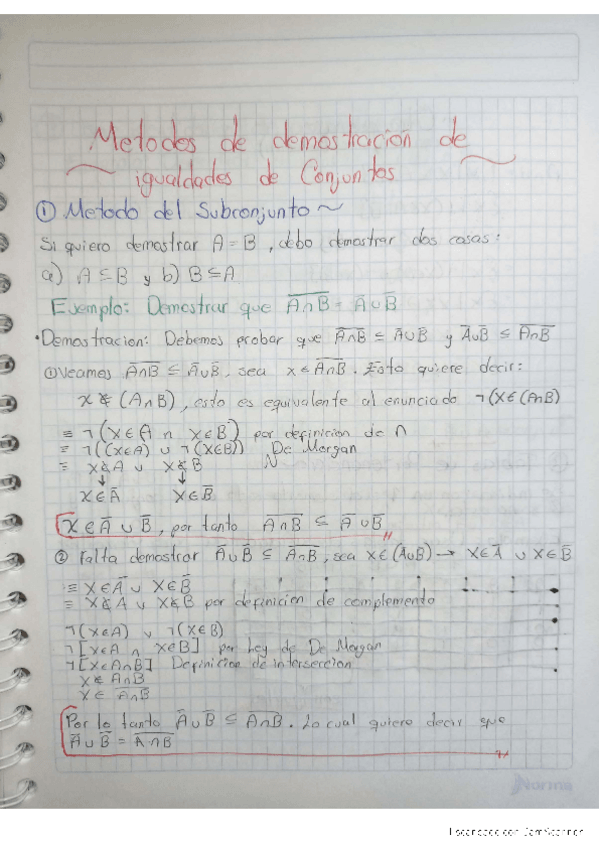 Metodos de demostracion de
igualdades de Conjuntos
① Metodo del Subconjunto ~
Si quiero demostrar A = B, debo demostrar dos cosas:
a) A ⊆ B y b) B ⊆ A
Ejemplo: Demostrar que \overline{A∩B} = Ā ∪ B̄
• Demostracion: Debemos probar que \overline{A∩B} ⊆ Ā∪B̄ y Ā∪B̄ ⊆ \overline{A∩B}
① Veamos \overline{A∩B} ⊆ Ā∪B̄, sea x ∈ \overline{A∩B}. Esto quiere decir:
x ∉ (A∩B), esto es equivalente al enunciado ¬(x∈(A∩B)
≡ ¬(x∈A ∩ x∈B) por definicion de ∩
≡ ¬((x∈A) ∪ ¬(x∈B)) De Morgan
≡ x∉A ∪ x∉B
↓ ↓
x∈Ā x∈B̄
x∈Ā∪B̄, por tanto \overline{A∩B} ⊆ Ā∪B̄
② Falta demostrar Ā∪B̄ ⊆ \overline{A∩B}, sea x∈(Ā∪B̄) → x∈Ā ∪ x∈B̄
≡ x∈Ā ∪ x∈B̄
≡ x∉A ∪ x∉B por definicion de complemento
¬(x∈A) ∨ ¬(x∈B)
¬[x∈A ∩ x∈B] por Ley de De Morgan
¬[x∈A∩B] Definicion de interseccion
x∉A∩B
x∈\overline{A∩B}
Por lo tanto Ā∪B̄ ⊆ \overline{A∩B}. Lo cual quiere decir que
Ā∪B̄ = \overline{A∩B}
Norma
Escaneado con CamScanner